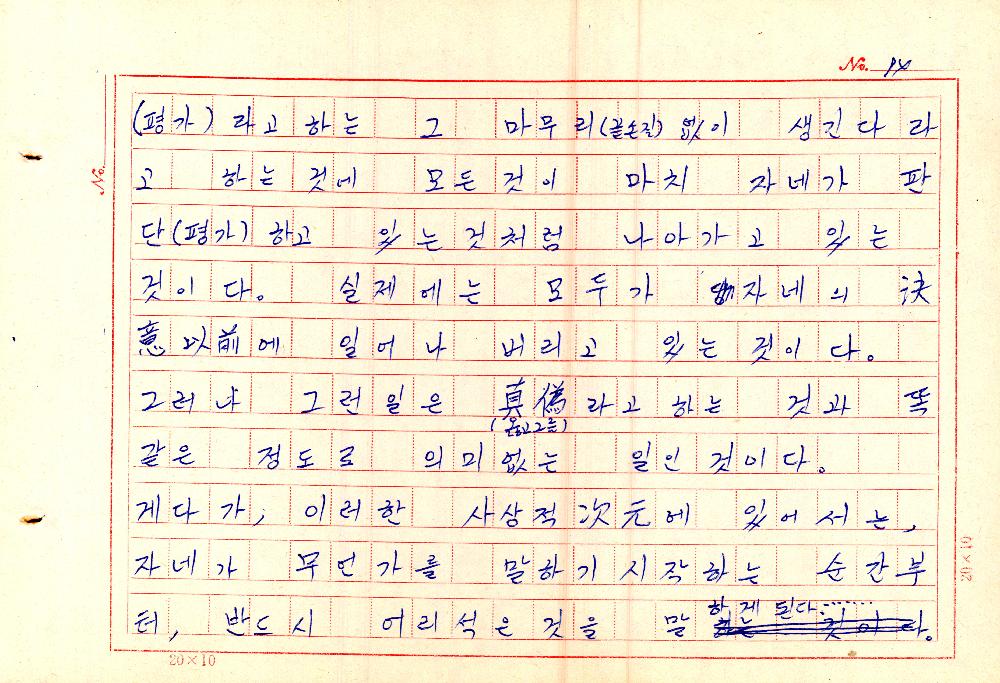 No. 94
(평가)라고 하는 그 마무리(끝손질) 없이 생긴다라
고 하는 것에 모든 것이 마치 자네가 판
단(평가)하고 있는 것처럼 나아가고 있는
것이다. 실제에는 모두가 자네의 決
意以前에 일어나 버리고 있는 것이다.
그러나 그런 일은 真偽라고 하는 것과 똑
(옳고 그름)
같은 정도로 의미없는 일인 것이다.
게다가, 이러한 사상적 次元에 있어서는,
자네가 무언가를 말하기 시작하는 순간부
하게 된다......
터, 반드시 어리석은 것을 말하는 것이다.
No.
20×10
20×10